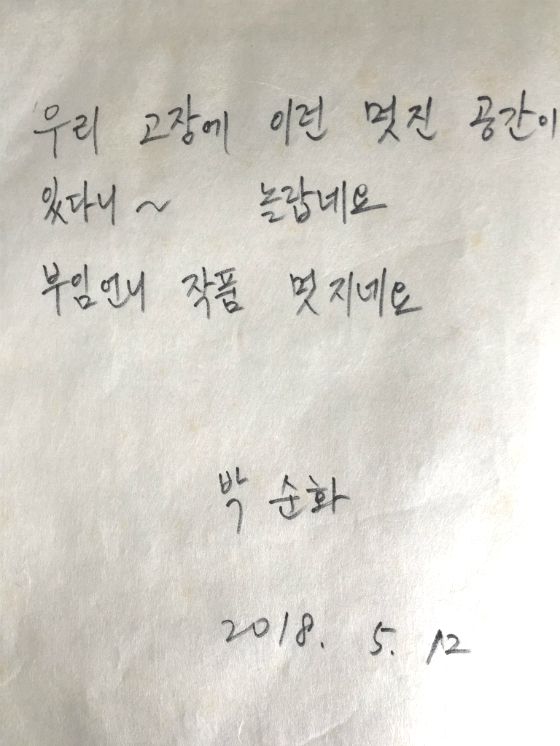 우리 고장에 이런 멋진 공간이
있다니~ 놀랍네요
부임언니 작품 멋지네요
박순화
2018. 5. 12